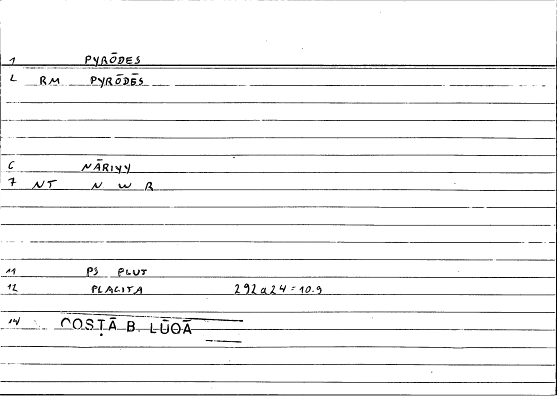 1 PYRŌDES
2 RM PYRŌDĒS
6 NĀRIYY
7 NT N W R
11 PS PLUT
12 PLACITA 292a24=10.9
14 COSṬĀ B. LŪQĀ